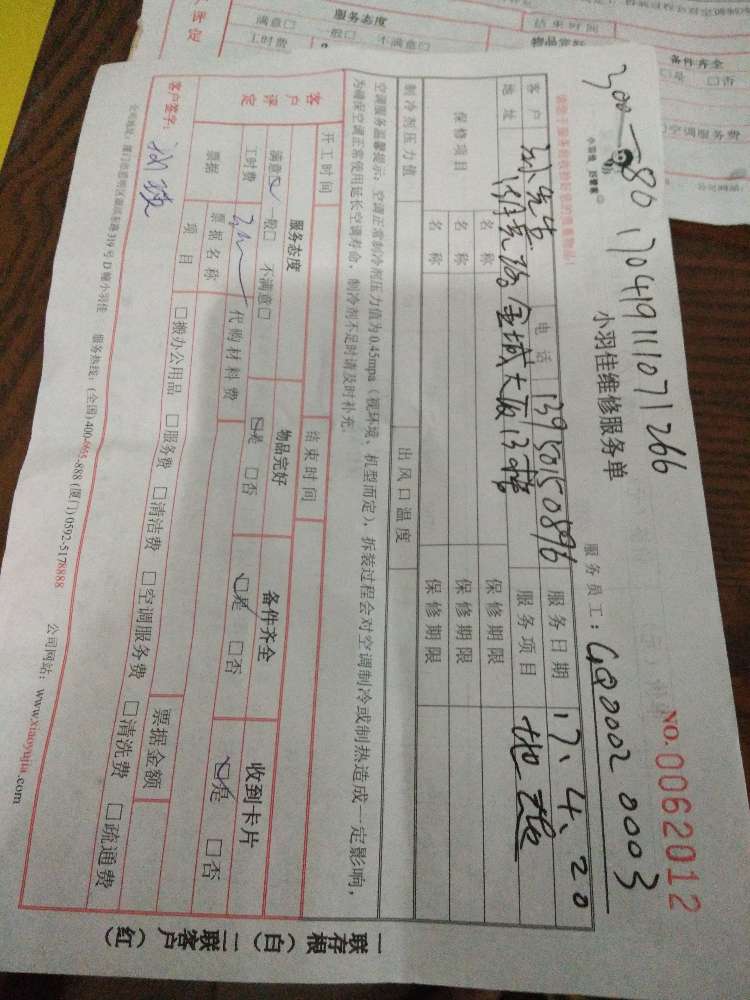 300-80 170419111071266
请您于服务前收拾好您的贵重物品!
小羽佳维修服务单
NO.0062012
服务员工: GQ0002 0003
客户 孙先生 电话 13950150896 服务日期 17.4.20
地址 金城大厦 服务项目 地板
保修项目 名称 保修期限
名称 保修期限
名称 保修期限
制冷剂压力值 出风口温度
空调服务温馨提示: 空调正常制冷剂压力值为0.45mpa (视环境、机型而定), 拆装过程会对空调制冷或制热造成一定影响,
为确保空调正常使用延长空调寿命, 制冷剂不足时请及时补充.
开工时间 结束时间
客户评定
服务态度 物品完好 备件齐全 收到卡片
满意☑ 一般□ 不满意□ ☑是 □否 ☑是 □否 ☑是 □否
工时费 代购材料费
票据 票据名称 票据金额
项目 □搬办公用品 □服务费 □清洁费 □空调服务费 □清洗费 □疏通费
客户签字:
公司地址: 厦门市思明区湖滨东路319号D幢小羽佳 服务热线: (全国)400-665-888 (厦门) 0592-5178888 公司网站: www.xiaoyujia.com
一联存根 (白) 二联客户 (红)
服务态度
满意□ 一般□ 不满意□
工时费
结束时间
备件齐全
□是 □否
□空调服务费